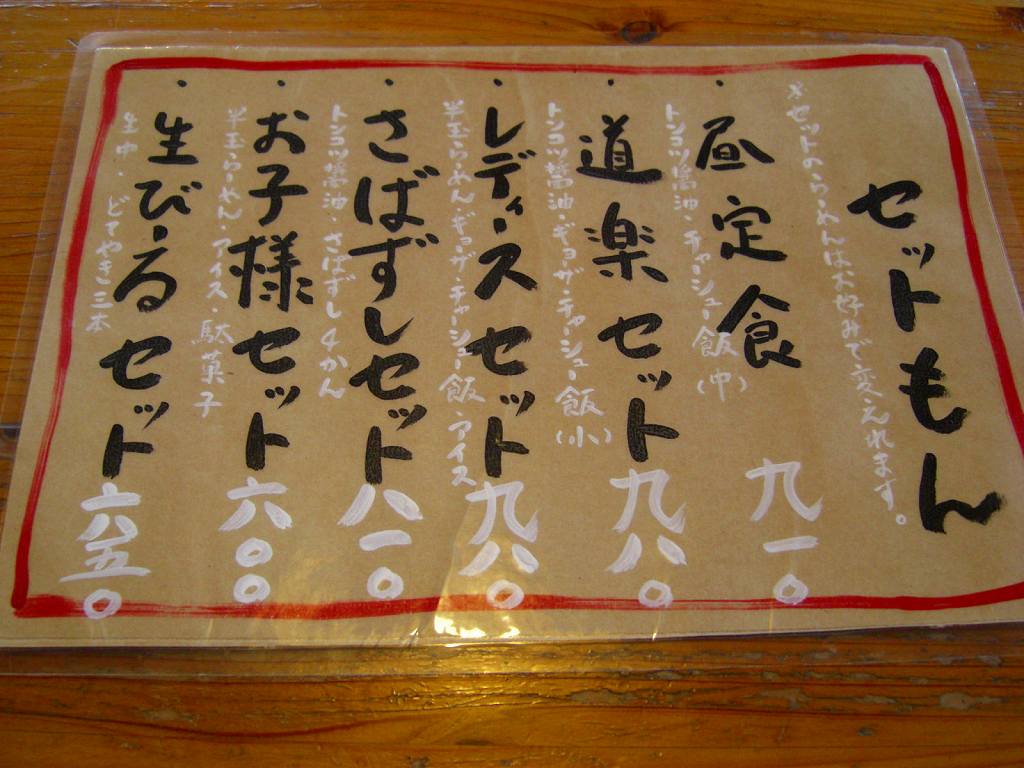 セットもん
※セットのらーめんはお好みで変えれます。
・昼定食 九一〇
トンコツ醤油・チャーシュー飯(中)
・道楽セット 九八〇
トンコツ醤油・ギョーザ・チャーシュー飯(小)
・レディースセット 九八〇
半玉らーめん・ギョーザ・チャーシュー飯・アイス
・さばずしセット 八一〇
トンコツ醤油 さばずし4かん
・お子様セット 六〇〇
半玉らーめん・アイス・駄菓子
・生びーるセット 六八五〇
生中・どてやき三本